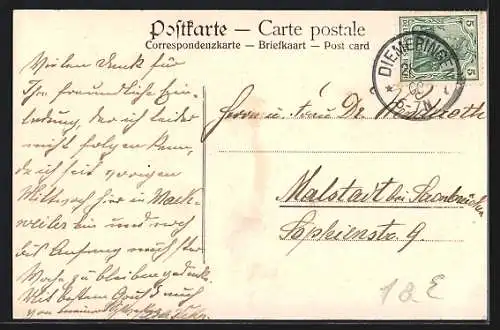 Postkarte — Carte postale
Correspondenzkarte — Briefkaart — Post card
DIEMERINGEN
6-7N
5 5
Vielen Dank für
Ihre freundliche Ein-
ladung, der ich leider
nicht folgen kann,
da ich seit vorigen
Mittwoch hier in Mack-
weiler bin und noch
bis Anfang nächster
Woche zu bleiben gedenke.
Mit bestem Gruß auch
von meiner
Herrn u. Frau Dr.
Malstadt bei Saarbrücken
Sophienstr. 9.
18 E